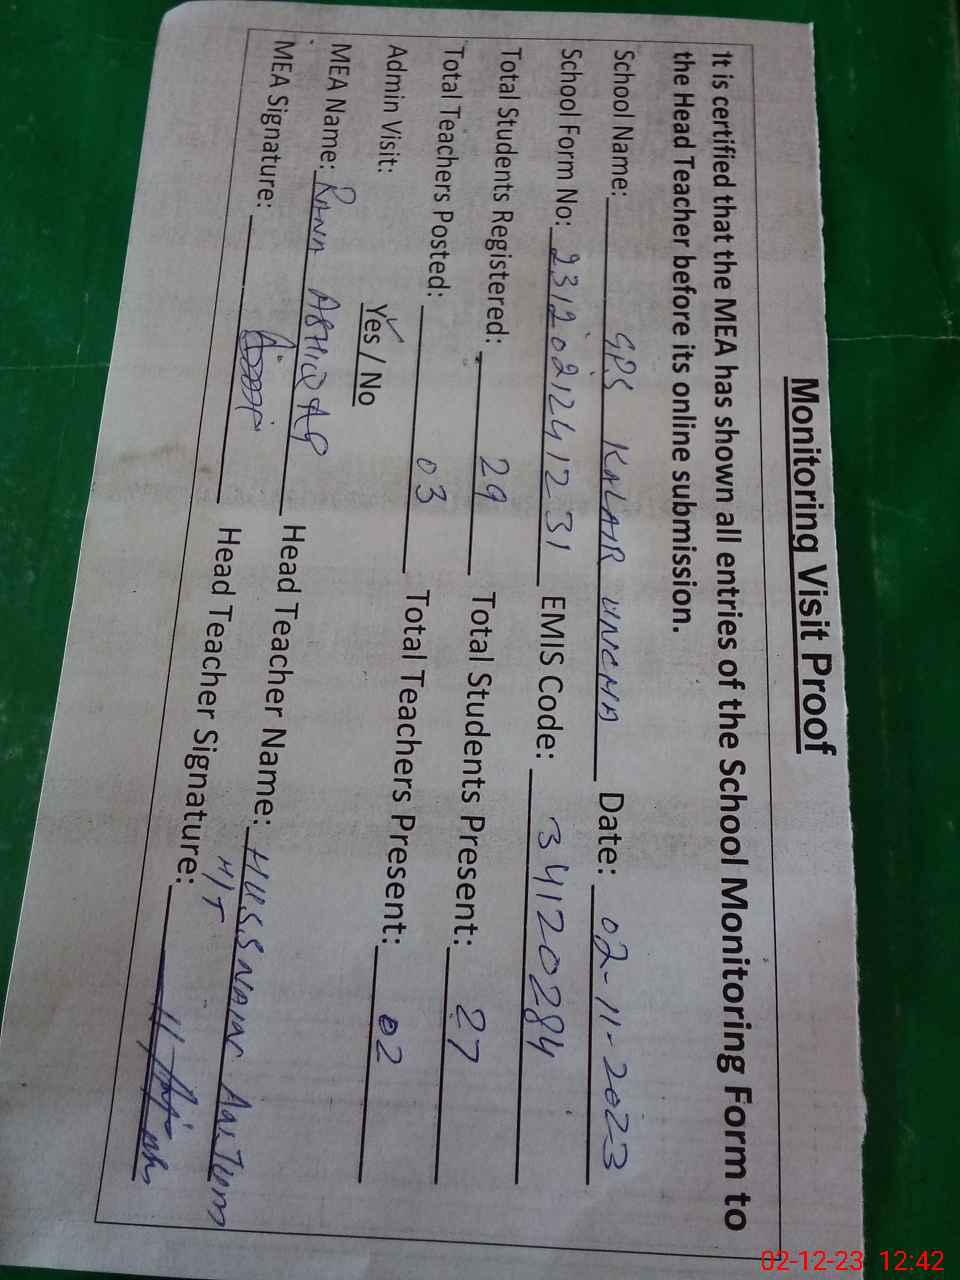 Monitoring Visit Proof
It is certified that the MEA has shown all entries of the School Monitoring Form to
the Head Teacher before its online submission.
School Name: GPS KALAIR UNCHA Date: 02-11-2023
School Form No: 231202124 1231 EMIS Code: 34120284
Total Students Registered: 29 Total Students Present: 27
Total Teachers Posted: 03 Total Teachers Present: 02
Admin Visit: Yes / No
MEA Name: RANA ASHIQ Head Teacher Name: HUSSNAIN
H/T
MEA Signature: Head Teacher Signature:
02-12-23 12:42